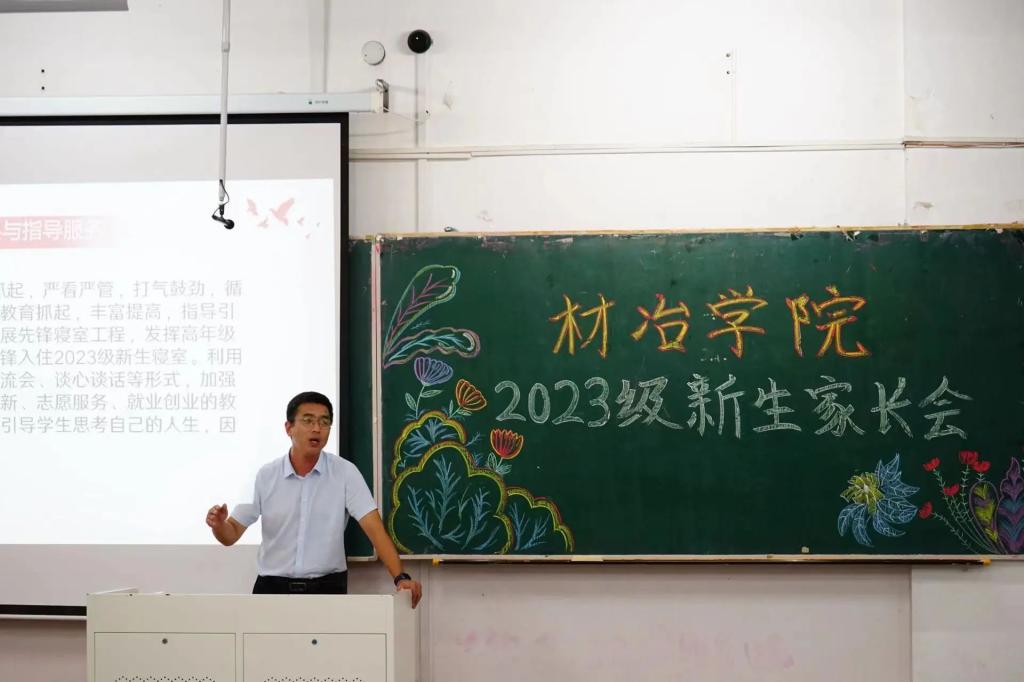 与指导服务
抓起，严看严管，打气鼓劲，循
教育抓起，丰富提高，指导引
展先锋寝室工程，发挥高年级
锋入住2023级新生寝室。利用
流会、谈心谈话等形式，加强
新、志愿服务、就业创业的教
引导学生思考自己的人生，因
材冶学院
2023级新生家长会